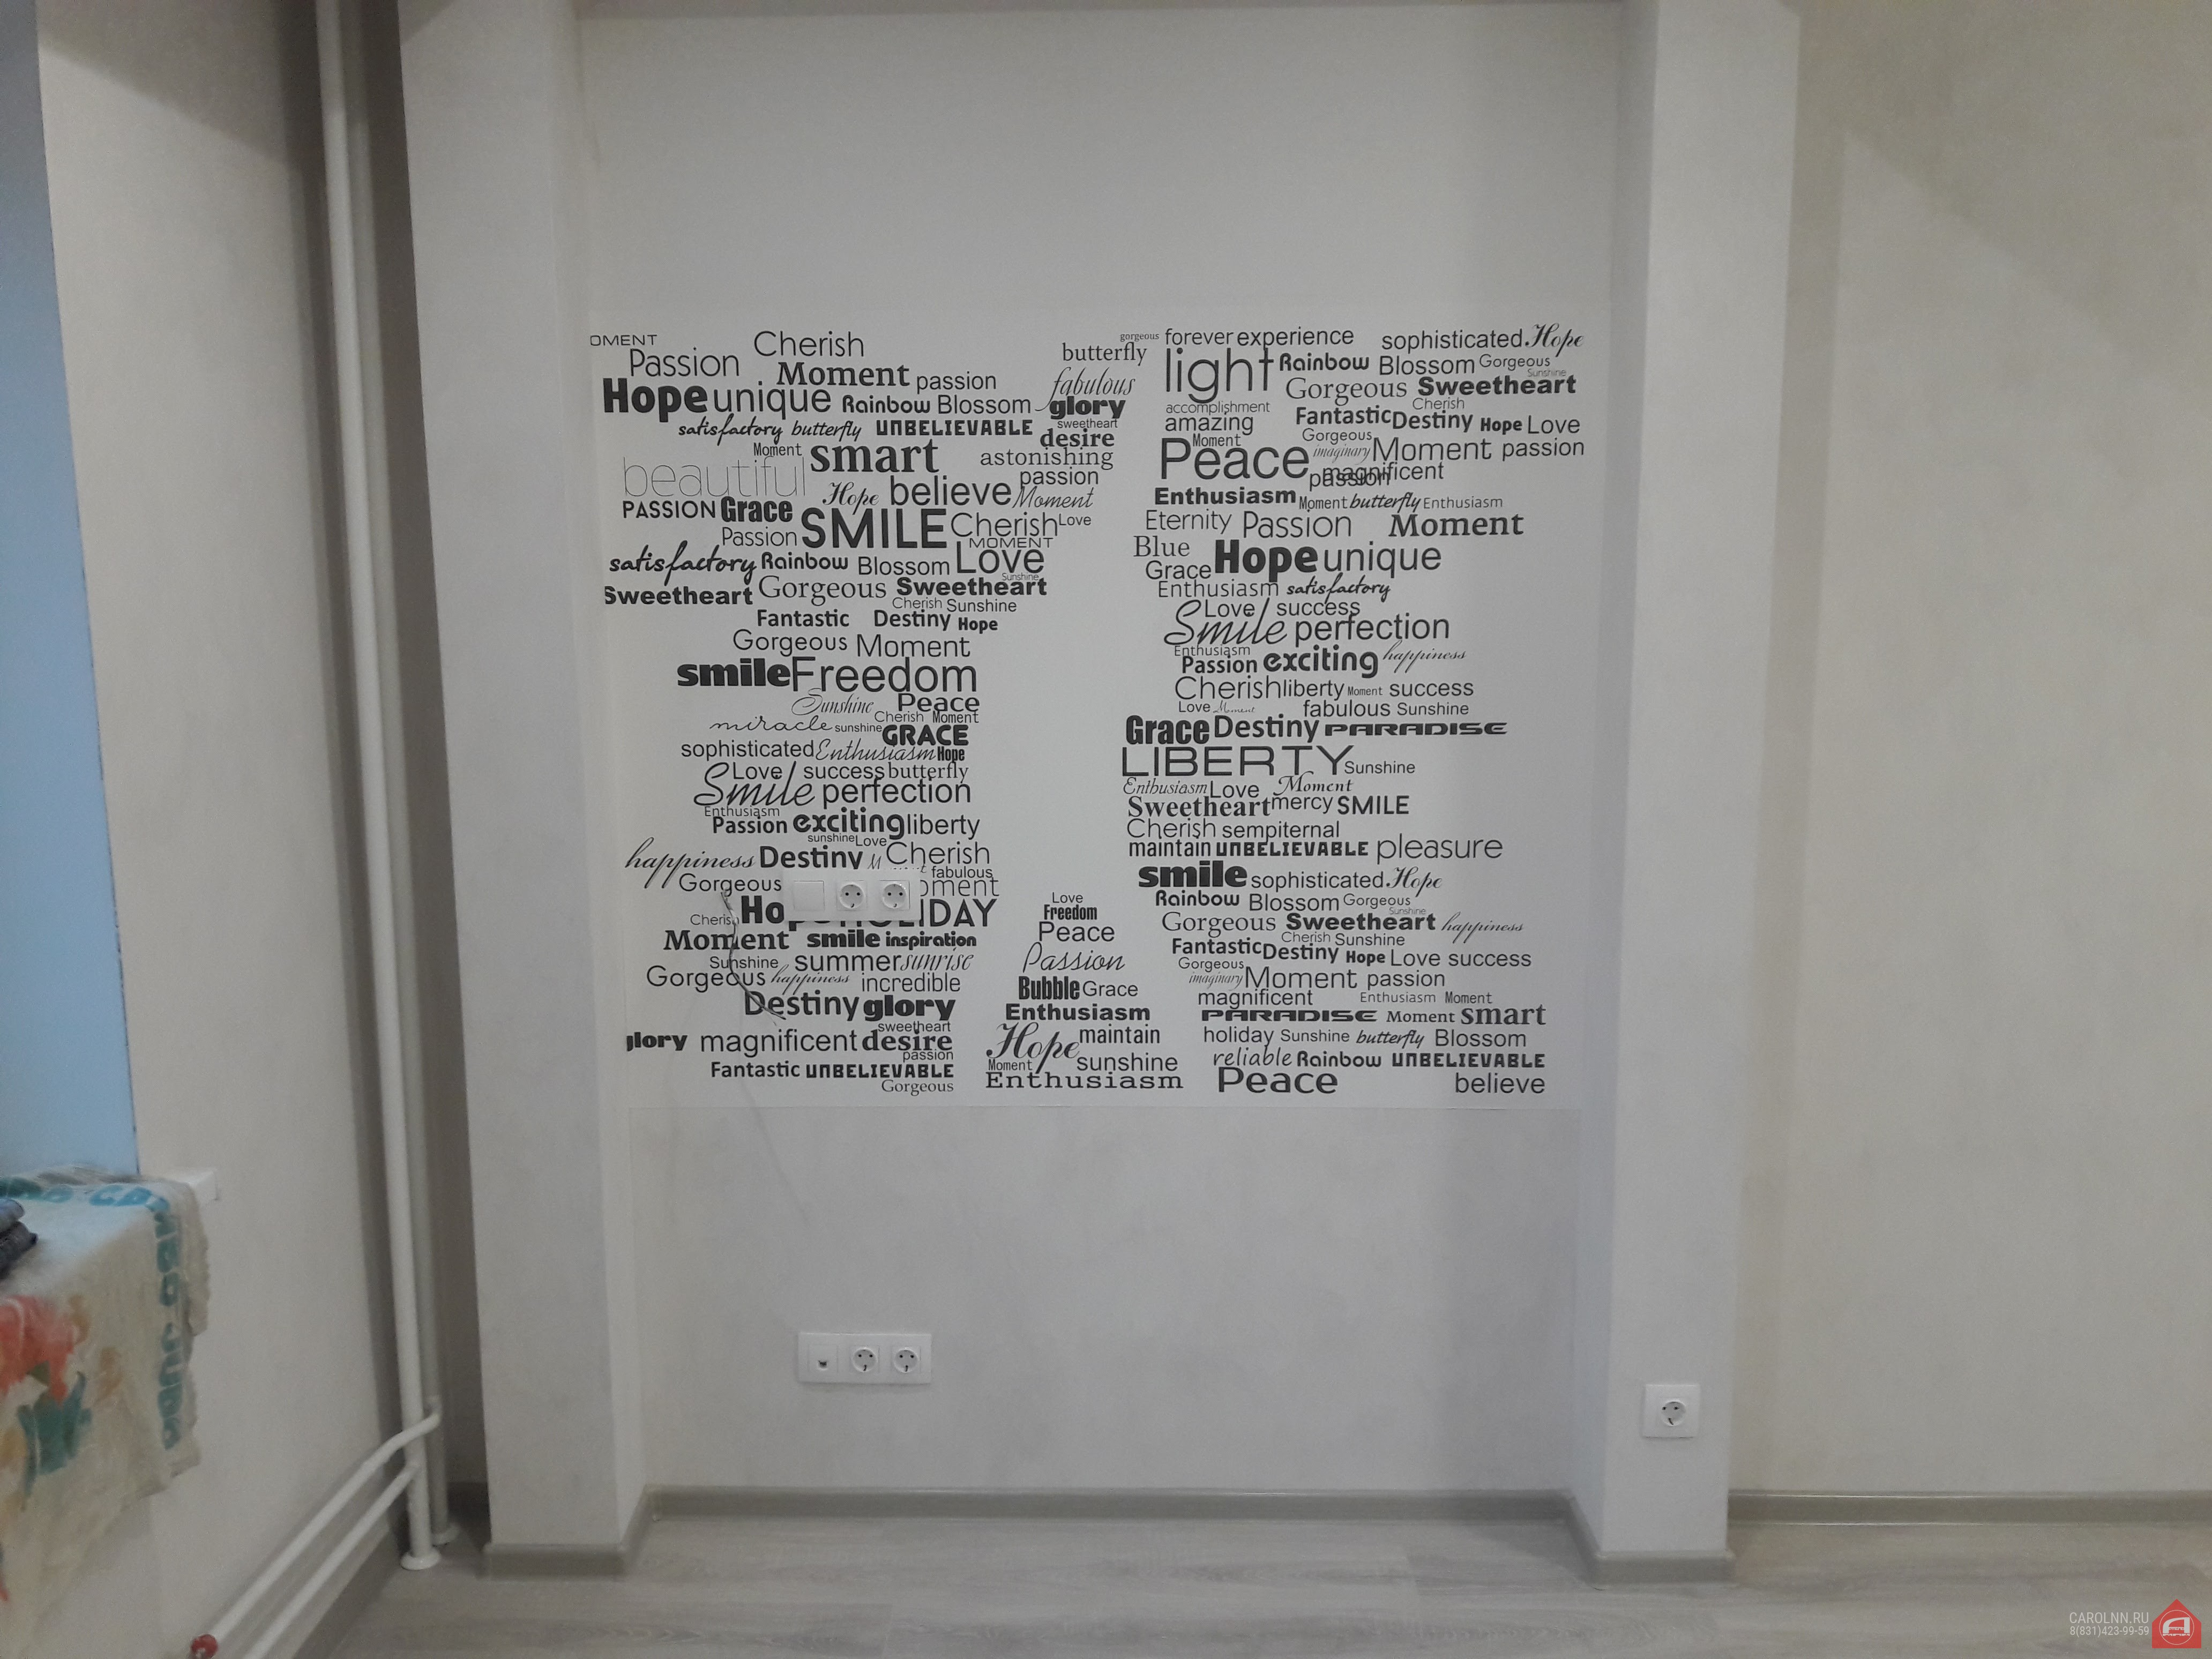 OMENT Cherish
Passion Moment passion
Hope unique Rainbow Blossom
satisfactory butterfly UNBELIEVABLE
Moment smart astonishing
beautiful Hope believe Moment
passion
PASSION Grace SMILE Cherish Love
Passion MOMENT
satisfactory Rainbow Blossom Love
Sunshine
Sweetheart Gorgeous Sweetheart
Cherish Sunshine
Fantastic Destiny Hope
Gorgeous Moment
smile Freedom
Sunshine Peace
miracle sunshine Cherish Moment
GRACE
sophisticated Enthusiasm Hope
Love success butterfly
Smile perfection
Enthusiasm
Passion exciting liberty
sunshine Love
happiness Destiny M Cherish
fabulous
Gorgeous oment
Cheris Ho IDAY
Moment smile inspiration
Sunshine summer sunrise
Gorgeous happiness incredible
Destiny glory
sweetheart
glory magnificent desire
passion
Fantastic UNBELIEVABLE
Gorgeous
butterfly
fabulous
glory
sweetheart
desire
gorgeous forever experience sophisticated Hope
light Rainbow Blossom Gorgeous
Sunshine
Gorgeous Sweetheart
accomplishment Cherish
amazing Fantastic Destiny Hope Love
Moment Gorgeous
Peace imaginary Moment passion
passion magnificent
Enthusiasm Moment butterfly Enthusiasm
Eternity Passion Moment
Blue Hope unique
Grace
Enthusiasm satisfactory
Love success
Smile perfection
Enthusiasm
Passion exciting happiness
Cherish liberty Moment success
Love Moment fabulous Sunshine
Grace Destiny PARADISE
LIBERTY Sunshine
Enthusiasm Love Moment
Sweetheart mercy SMILE
Cherish sempiternal
maintain UNBELIEVABLE pleasure
smile sophisticated Hope
Rainbow Blossom Gorgeous
Sunshine
Gorgeous Sweetheart happiness
Cherish Sunshine
Fantastic Destiny Hope Love success
Gorgeous
imaginary Moment passion
magnificent Enthusiasm Moment
PARADISE Moment smart
holiday Sunshine butterfly Blossom
reliable Rainbow UNBELIEVABLE
Peace believe
Love
Freedom
Peace
Passion
Bubble Grace
Enthusiasm
Hope maintain
Moment sunshine
Enthusiasm
CAROLNN.RU
8(831)423-99-59